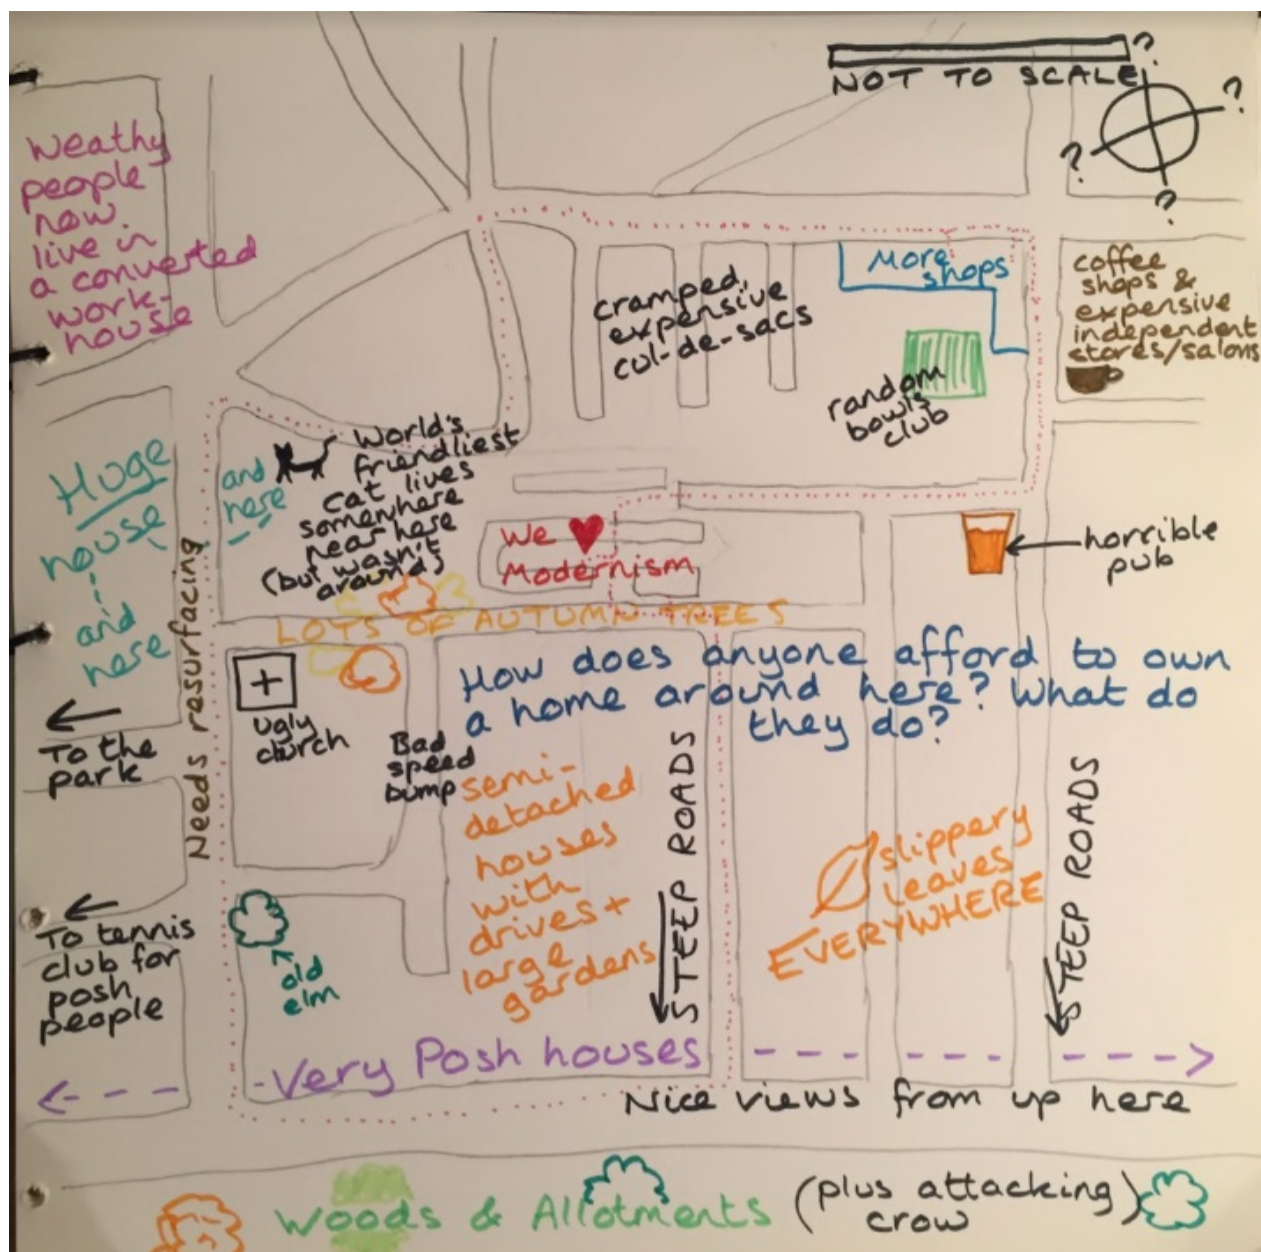 NOT TO SCALE
?
?
?
?
Weathy
people
now
live in
a converted
work-
house
More
shops
coffee
shops &
expensive
independent
stores/salons
cramped,
expensive
cul-de-sacs
random
bowls
club
Huge
house
and
here
and
here
World's
friendliest
cat lives
somewhere
near here
(but wasn't
around)
We
Modernism
horrible
pub
LOTS OF AUTUMN TREES
Needs resurfacing
Ugly
church
Bad
speed
bump
How does anyone afford to own
a home around here? What do
they do?
To the
park
semi-
detached
houses
with
drives +
large
gardens
STEEP ROADS
slippery
leaves
EVERYWHERE
STEEP ROADS
To tennis
club for
posh
people
old
elm
Very Posh houses
Nice views from up here
Woods & Allotments
(plus attacking
crow)